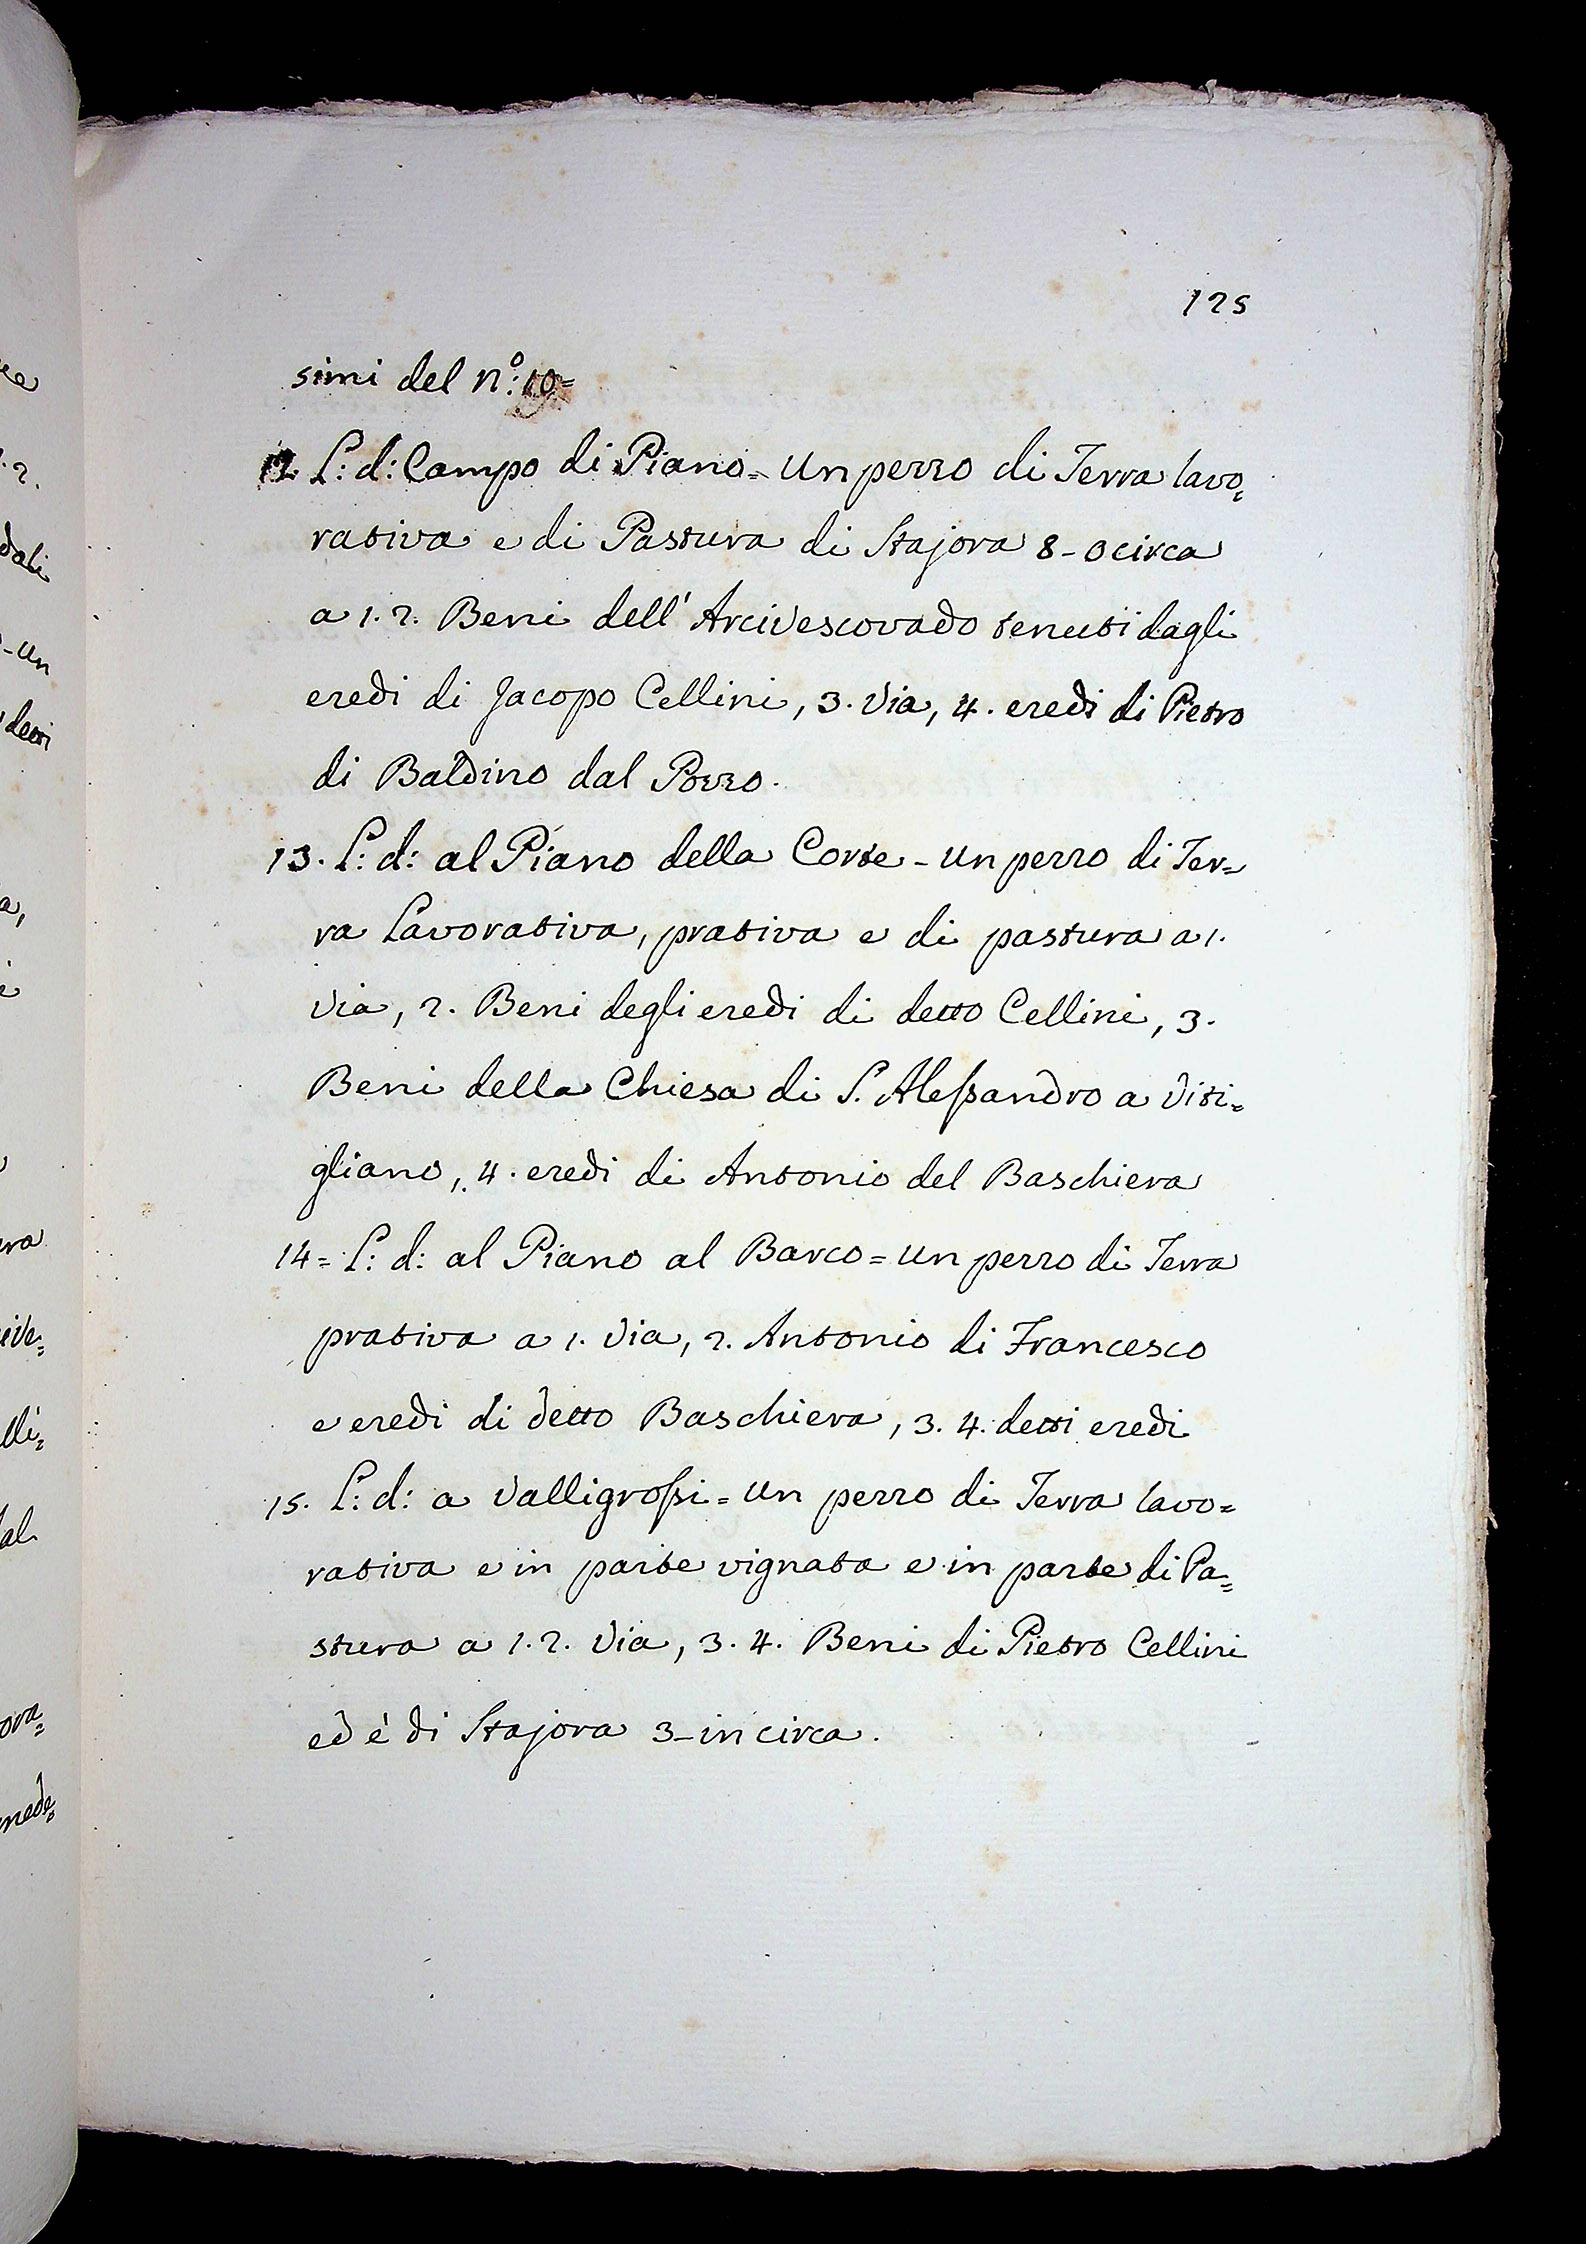 125
simi del n.º: 10=
12 L: d: Campo di Piano= un pezzo di Terra lavo=
rativa e di Pastura di Stajora 8-0 circa
a 1. 2. Beni dell' Arcivescovado tenuti dagli
eredi di Jacopo Cellini, 3. Via, 4. eredi di Pietro
di Baldino dal Pozzo.
13. L: d: al Piano della Corte - un pezzo di Ter=
ra Lavorativa, prativa e di pastura a 1.
Via, 2. Beni degli eredi di detto Cellini, 3.
Beni della Chiesa di S. Alessandro a Viti=
gliano, 4. eredi di Antonio del Baschiera
14= L: d: al Piano al Barco = un pezzo di Terra
prativa a 1. Via, 2. Antonio di Francesco
e eredi di detto Baschiera, 3. 4. detti eredi
15. L: d: a Valligrossi = un pezzo di Terra lavo=
rativa e in parte vignata e in parte di Pa=
stura a 1. 2. Via, 3. 4. Beni di Pietro Cellini
ed è di Stajora 3- in circa.